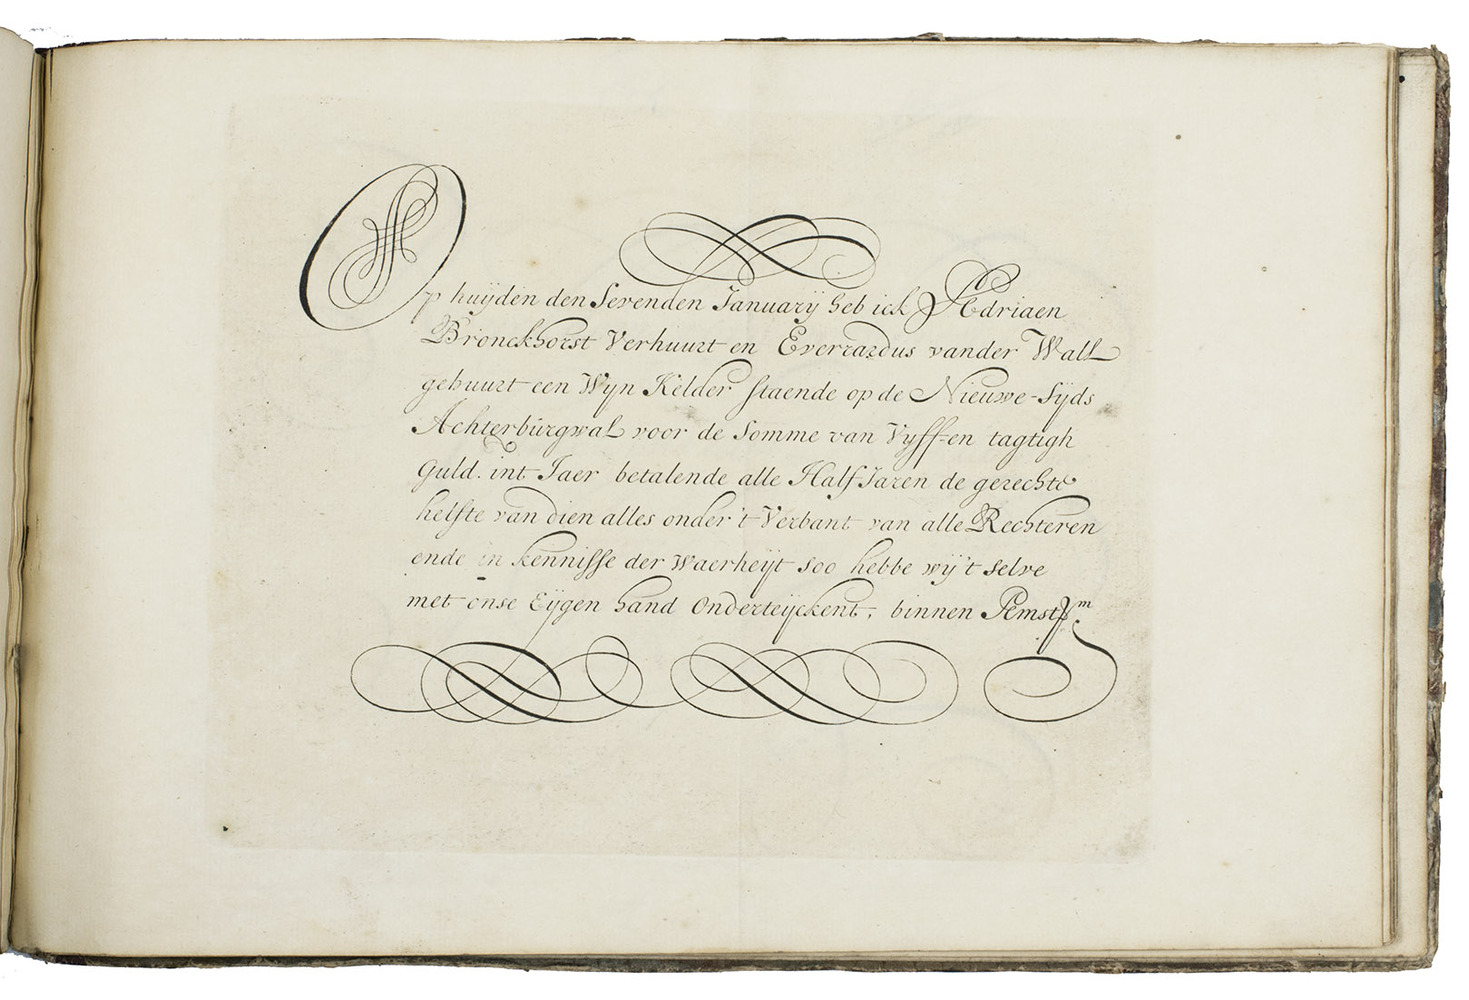 Op huijden den Sevenden Ianuarij heb ick Adriaen
Bronckhorst Verhuurt en Everrardus vander Wall
gehuurt een Wyn Kelder staende op de Nieuwe-Sijds
Achterburgwal voor de Somme van Vyff-en tagtigh
Guld. int Iaer betalende alle Half-Iaren de gerechte
helfte van dien alles onder 't Verbant van alle Rechteren
ende in kennisse der Waerheijt soo hebbe wij 't selve
met onse Eijgen hand Onderteijckent, binnen